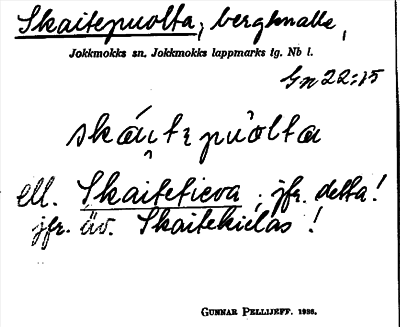 Skaitepuolta, bergknalle,
Jokkmokks sn. Jokkmokks lappmarks tg. Nb l.
Gn 22:15
skáıtɛ puolta
ell. Skaitetieva, jfr. detta!
jfr. äv. Skaitekielas!
GUNNAR PELLIJEFF. 1936.